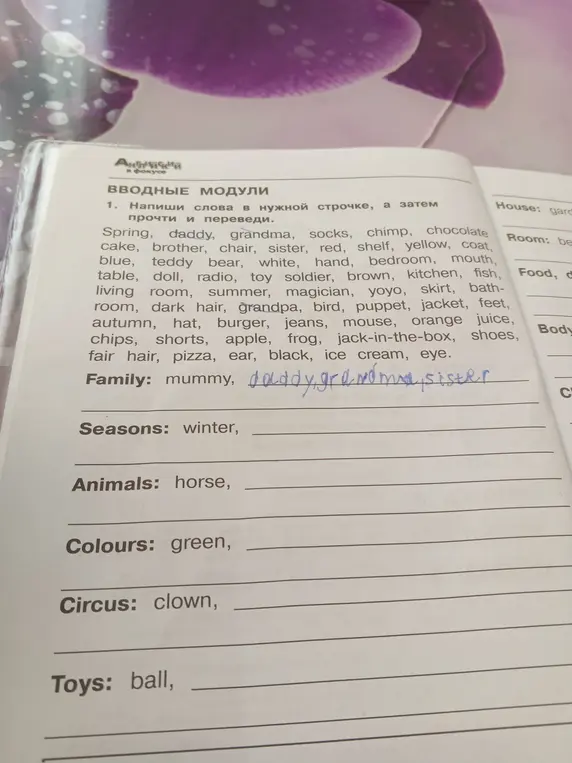 Английский
в фокусе
ВВОДНЫЕ МОДУЛИ
1. Напиши слова в нужной строчке, а затем
прочти и переведи.
Spring, daddy, grandma, socks, chimp, chocolate
cake, brother, chair, sister, red, shelf, yellow, coat,
blue, teddy bear, white, hand, bedroom, mouth,
table, doll, radio, toy soldier, brown, kitchen, fish,
living room, summer, magician, yoyo, skirt, bath-
room, dark hair, grandpa, bird, puppet, jacket, feet,
autumn, hat, burger, jeans, mouse, orange juice,
chips, shorts, apple, frog, jack-in-the-box, shoes,
fair hair, pizza, ear, black, ice cream, eye.
Family: mummy, daddy, grandma, sister
Seasons: winter,
Animals: horse,
Colours: green,
Circus: clown,
Toys: ball,
House:
Room:
Food,
Body